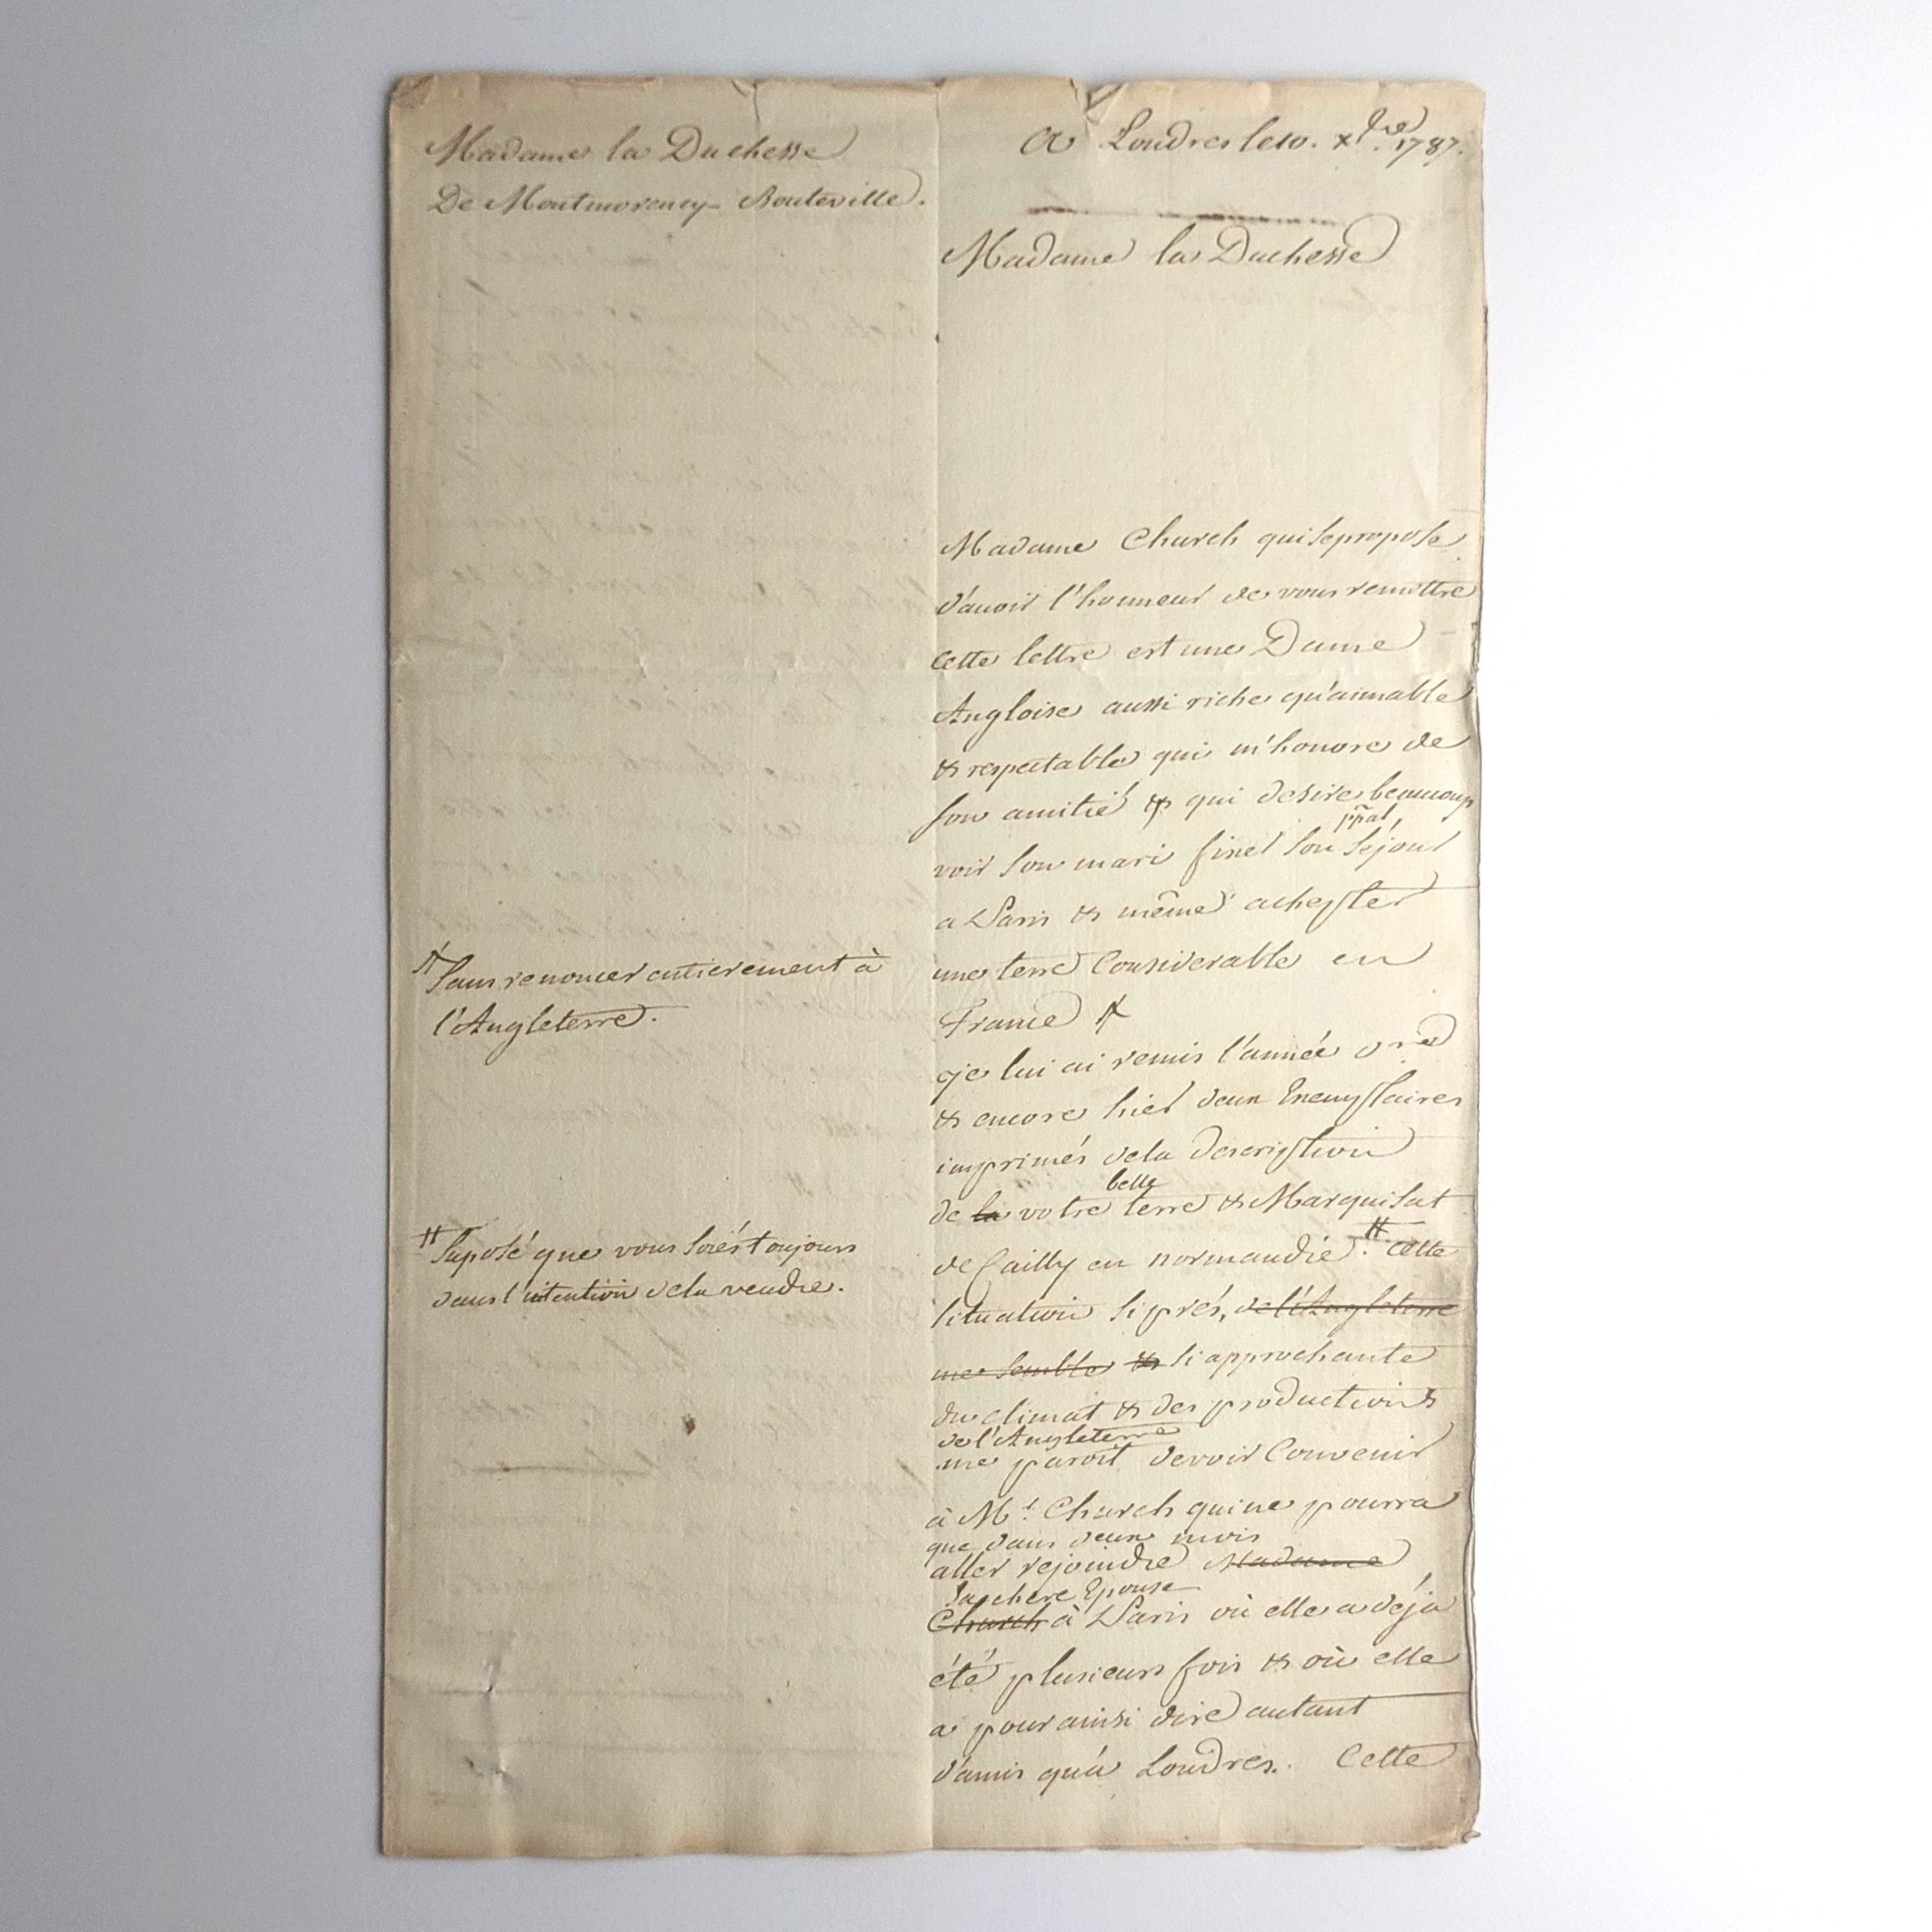 Madame la Duchesse
De Montmorency-Bouteville.
a Londres le 10. xbre. 1787.
Madame la Duchesse
Madame Church qui se propose
d'avoir l'honneur de vous remettre
cette lettre est une Dame
Angloise aussi riche qu'aimable
& respectable qui m'honore de
son amitié & qui desire beaucoup
ppal,
voir son mari fixer son séjour
a Paris & même achepter
une terre Considerable en
France #
je lui ai remis l'année dre
& encore hier deux Exemplaires
imprimés de la Description
belle
de la votre terre & Marquisat
de Cailly en normandie. # cette
situation si près, de l'Angleterre
me semble & si approchante
du climat & des productions
de l'Angleterre
me paroit devoir Convenir
à Mr. Church qui ne pourra
que dans deux mois
aller rejoindre Madame
sa chere Epouse
Church à Paris où elle a déja
été plusieurs fois & où elle
a pour ainsi dire autant
d'amis qu'à Londres. Cette
# Sans renoncer entierement à
l'Angleterre.
# Suposé que vous soiés toujours
dans l'intention de la vendre.